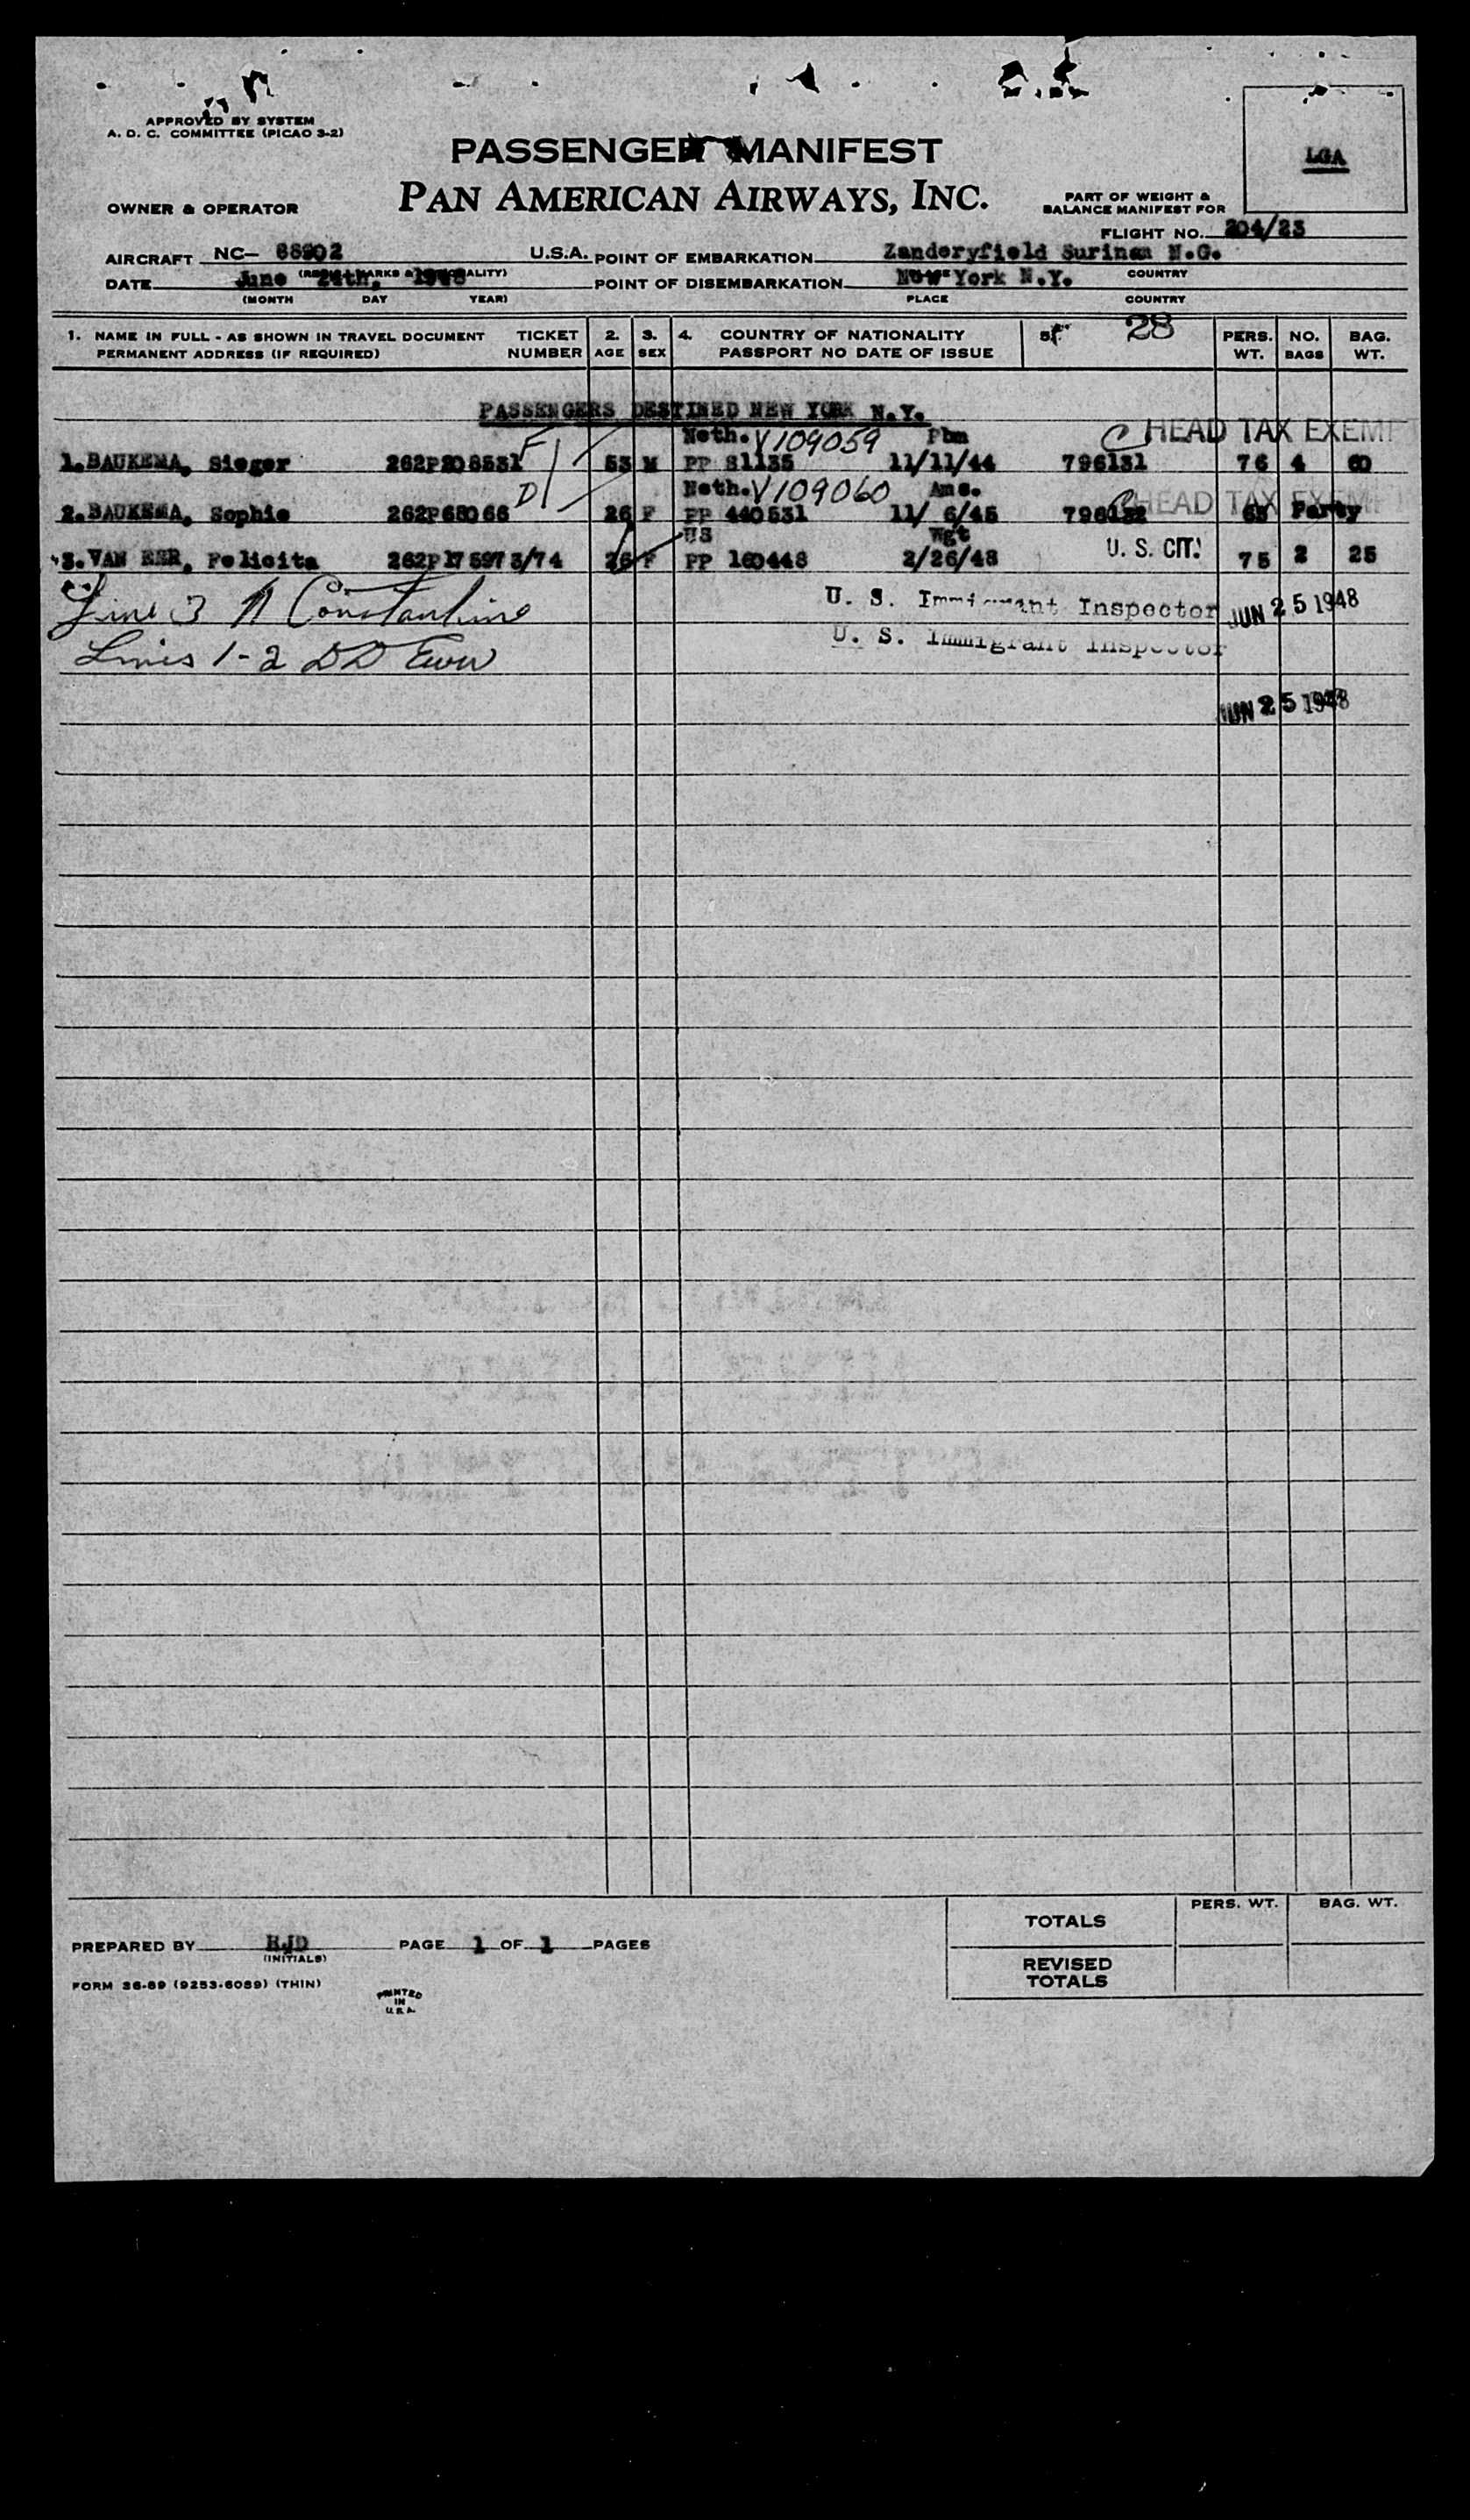 APPROVED BY SYSTEM
A. D. C. COMMITTEE (PICAO 3-2)
PASSENGER MANIFEST
LGA
OWNER & OPERATOR
PAN AMERICAN AIRWAYS, INC.
PART OF WEIGHT &
BALANCE MANIFEST FOR
FLIGHT NO. 204/23
AIRCRAFT NC- 88902 U.S.A. POINT OF EMBARKATION Zanderyfield Surinam N.G.
DATE June 24th, 1948 POINT OF DISEMBARKATION New York N.Y. COUNTRY
(MONTH DAY YEAR) PLACE COUNTRY
1. NAME IN FULL - AS SHOWN IN TRAVEL DOCUMENT TICKET 2. 3. 4. COUNTRY OF NATIONALITY 5. 28 PERS. NO. BAG.
PERMANENT ADDRESS (IF REQUIRED) NUMBER AGE SEX PASSPORT NO DATE OF ISSUE WT. BAGS WT.
PASSENGERS DESTINED NEW YORK N.Y.
Neth. V109059 Pbm C HEAD TAX EXEMP
1. BAUKEMA, Sieger 262P208531 F 53 M PP 81135 11/11/44 796131 76 4 60
Neth. V109060 Ams. C HEAD TAX EXEMP
2. BAUKEMA, Sophie 262P68066 D 26 F PP 440531 11/ 6/45 796132 65 Party
US Wgt U. S. CIT.
3. VAN EER, Felicita 262P175973/74 26 F PP 160448 2/26/48 75 2 25
Line 3 A Constantine U. S. Immigrant Inspector JUN 25 1948
Lines 1-2 DD U. S. Immigrant Inspector
JUN 25 1948
PERS. WT. BAG. WT.
TOTALS
PREPARED BY HJD PAGE 1 OF 1 PAGES
(INITIALS)
REVISED
TOTALS
FORM 36-69 (9253-6089) (THIN)
PRINTED
IN
U.S.A.